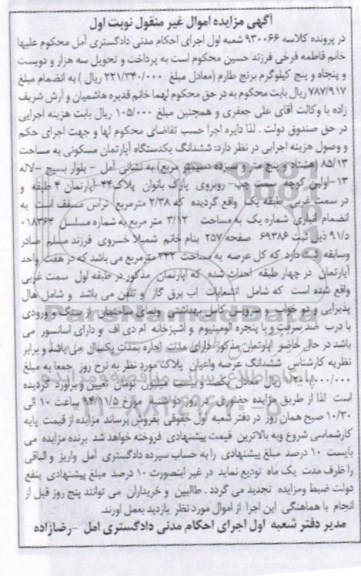 آگهی مزایده اموال غیر منقول نوبت اول
در پرونده کلاسه ۹۳۰۰۶۶ شعبه اول اجرای احکام مدنی دادگستری آمل محکوم علیها
خانم فاطمه فرخی فرزند حسین محکوم است به پرداخت و تحویل سه هزار و دویست
و پنجاه و پنج کیلوگرم برنج طارم (معادل مبلغ ۲۲۱/۳۴۰/۰۰۰ ریال) به انضمام مبلغ
۷۸۷/۹۱۷ ریال بابت محکوم به در حق محکوم لهما خانم قدیره هاشمیان و آرش شریف
زاده با وکالت آقای علی جعفری و همچنین مبلغ ۱۰۵/۰۰۰ ریال بابت هزینه اجرایی
در حق صندوق دولت . لذا دایره اجرا حسب تقاضای محکوم لها و جهت اجرای حکم
و وصول هزینه اجرایی در نظر دارد: ششدانگ یکدستگاه آپارتمان مسکونی به مساحت
۸۵/۱۳ (هشتاد و پنج متر و سیزده دسیمتر مربع) به نشانی آمل - بلوار بسیج - لاله
۱۳ - اولین کوچه سمت چپ - روبروی پارک بانوان پلاک ۴۴ - آپارتمان ۴ طبقه و
در سمت غربی طبقه یک واقع گردیده که ۲/۳۸ مترمربع تراس مسقف است به
انضمام انباری شماره یک به مساحت ۳/۱۲ متر مربع به شماره مسلسل ۰۱۸۳۶۴
د/۹۱ ذیل ثبت ۶۹۳۸۶ صفحه ۲۵۷ بنام خانم شمیلا خسروی فرزند مسلم صادر
وسابقه ثبت دارد که کل عرصه به مساحت ۲۳۲ مترمربع می باشد که در هفت واحد
آپارتمان در چهار طبقه احداث شده که آپارتمان مذکور در طبقه اول سمت غربی
واقع شده است که شامل انشعابات آب برق گاز و تلفن می باشد و شامل هال
پذیرایی و دو خواب و سرویس کامل بهداشتی ونمای ساختمان سنگ و ورودی
با درب ضد سرقت و با پنجره آلومینیوم و آشپزخانه ام دی اف و دارای آسانسور می
باشد در حال حاضر آپارتمان مذکور دارای مدت اجاره بمدت یکسال می باشد و برابر
نظریه کارشناس ششدانگ عرصه واعیان پلاک مورد نظر به نرخ روز جمعا به مبلغ
ریال معادل یکصد و بیست میلیون تومان تعیین و برآورد گردیده
است لذا از طریق مزایده حضوری در روز دوشنبه مورخ ۹۴/۱۱/۵ ساعت ۱۰ الی
۱۰/۳۰ صبح همان روز در دفتر شعبه اول حقوقی بفروش برساند مزایده از قیمت پایه
کارشناسی شروع وبه بالاترین قیمت پیشنهادی فروخته خواهد شد برنده مزایده می
بایست ۱۰ درصد مبلغ پیشنهادی را به حساب سپرده دادگستری آمل واریز و الباقی
را ظرف مدت یک ماه تودیع نماید در غیر اینصورت ۱۰ درصد مبلغ پیشنهادی بنفع
دولت ضبط ومزایده تجدید می گردد . طالبین و خریداران می توانند پنج روز قبل از
انجام با هماهنگی این اجرا از اموال مورد نظر بازدید بعمل آورند.
مدیر دفتر شعبه اول اجرای احکام مدنی دادگستری آمل - رضازاده